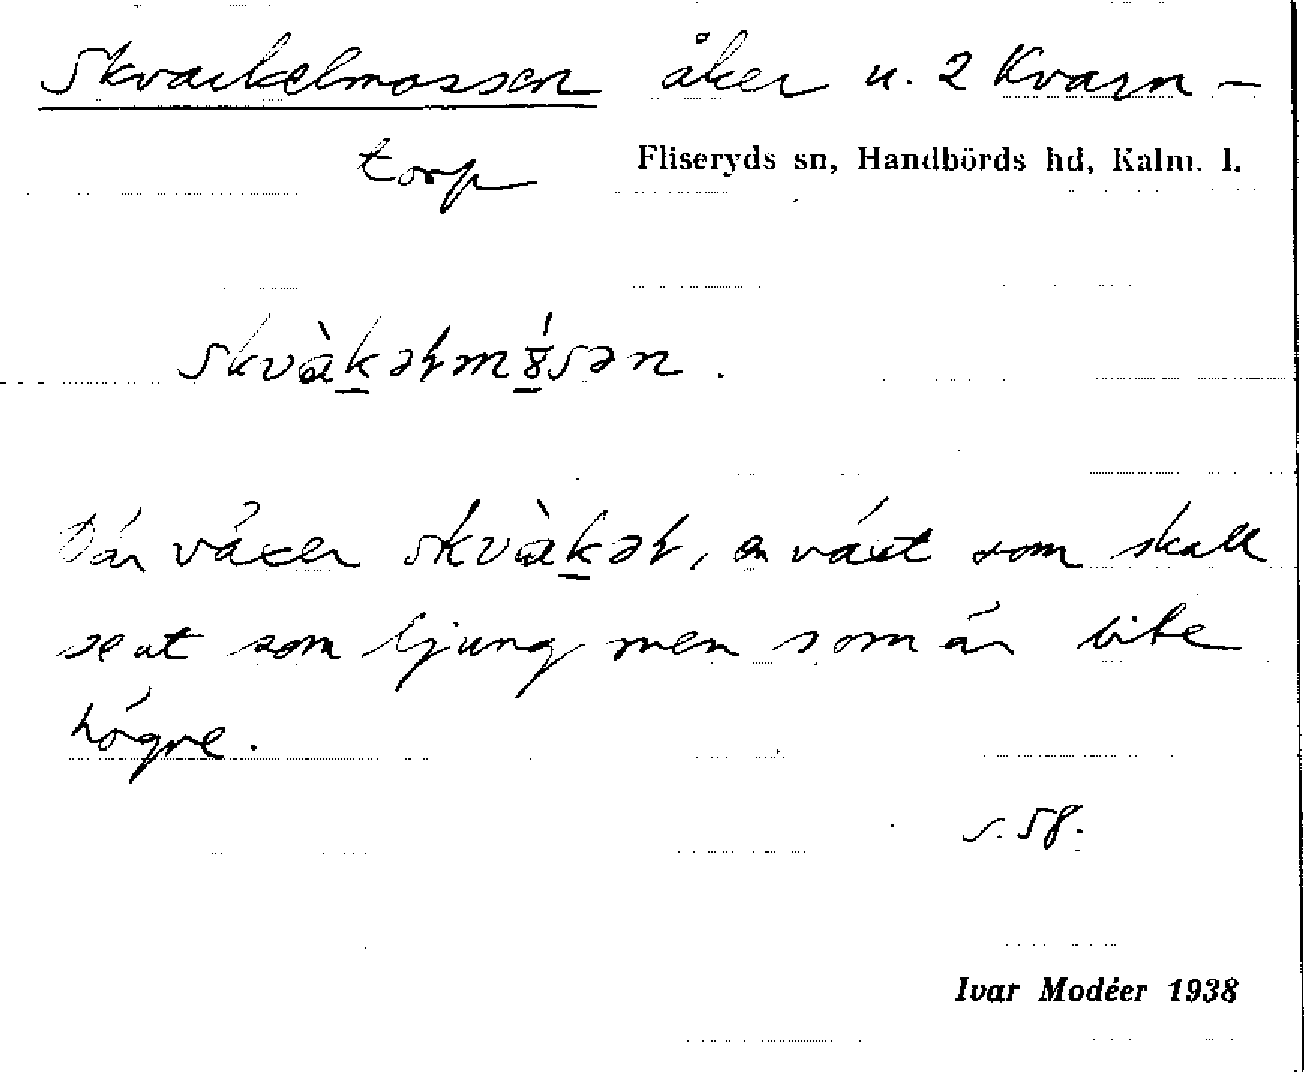 Skvackelmossen åker u. 2 Kvarn-
torp
Fliseryds sn, Handbörds hd, Kalm. l.
skvàk̠əɫmɤ̠́sən.
Där växer skvàk̠əɫ, en växt som skall
se ut som ljung men som är lite
högre.
s. 58.
Ivar Modéer 1938